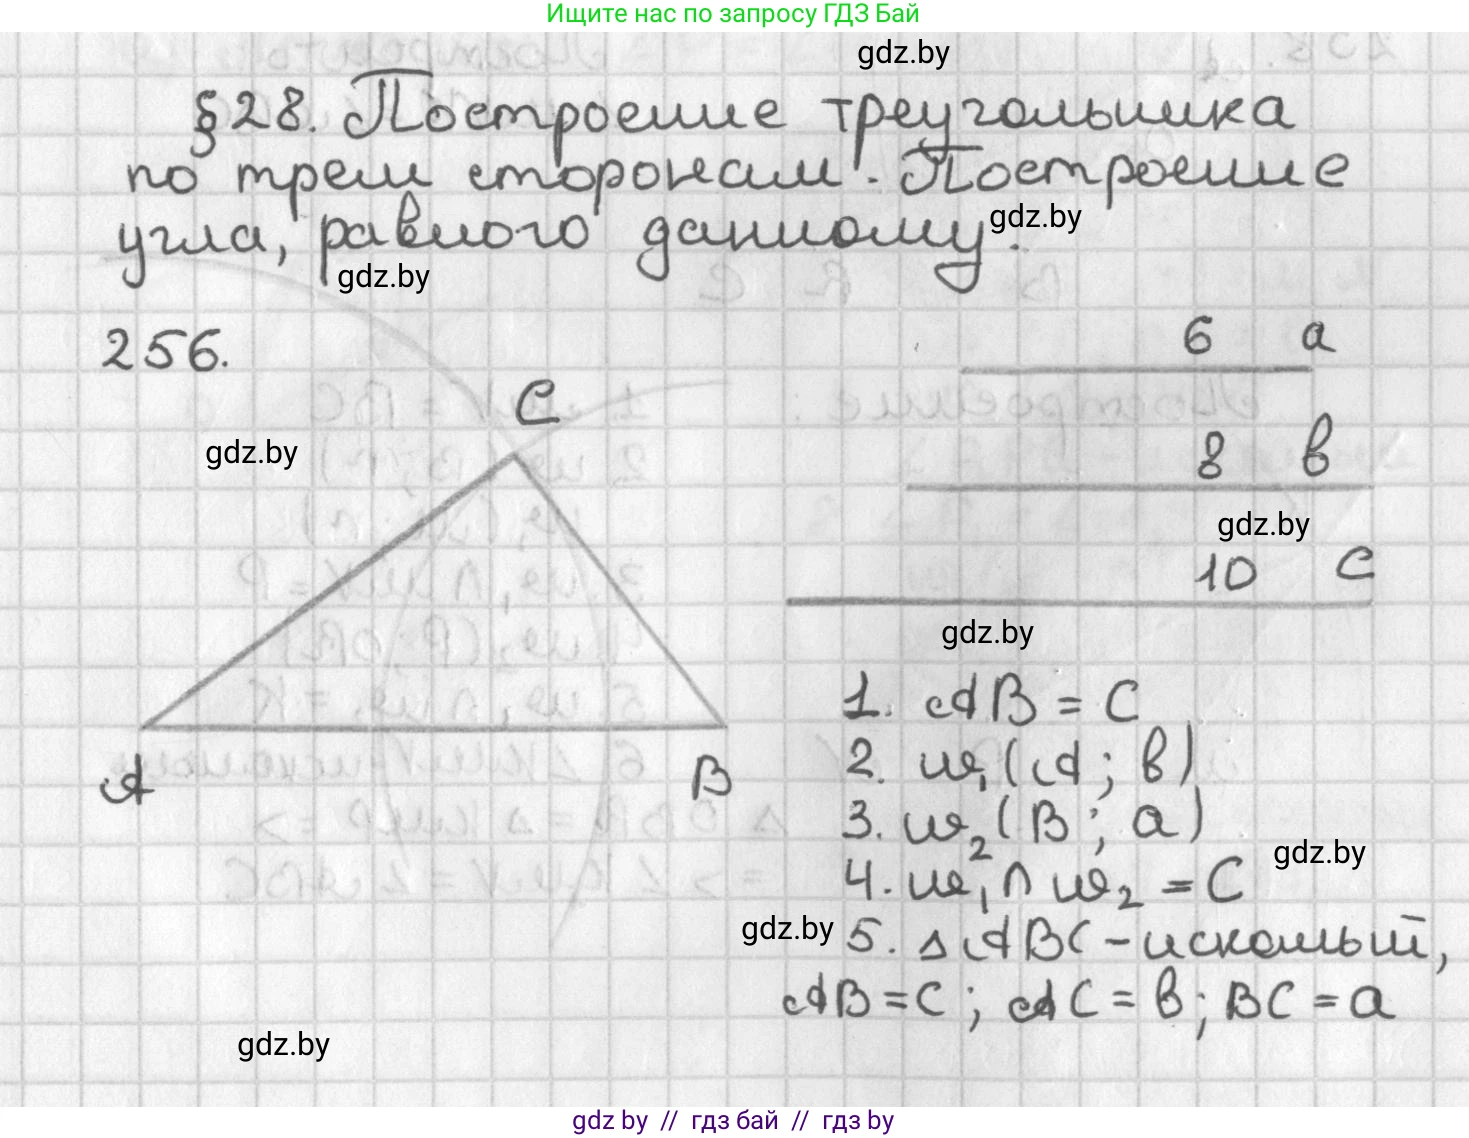 Ищите нас по запросу ГДЗ Бай
gdz.by
§28. Построение треугольника
по трем сторонам. Построение
gdz.by
угла, равного данному.
gdz.by
256.
6 a
C
gdz.by
8 b
gdz.by
10 c
gdz.by
1. AB = C
A B
2. ω₁(A; b)
3. ω₂(B; a)
gdz.by
4. ω₁ ∩ ω₂ = C
gdz.by
5. ΔABC - искомый,
AB = C; AC = b; BC = a
gdz.by
gdz by // гдз бай // гдз by